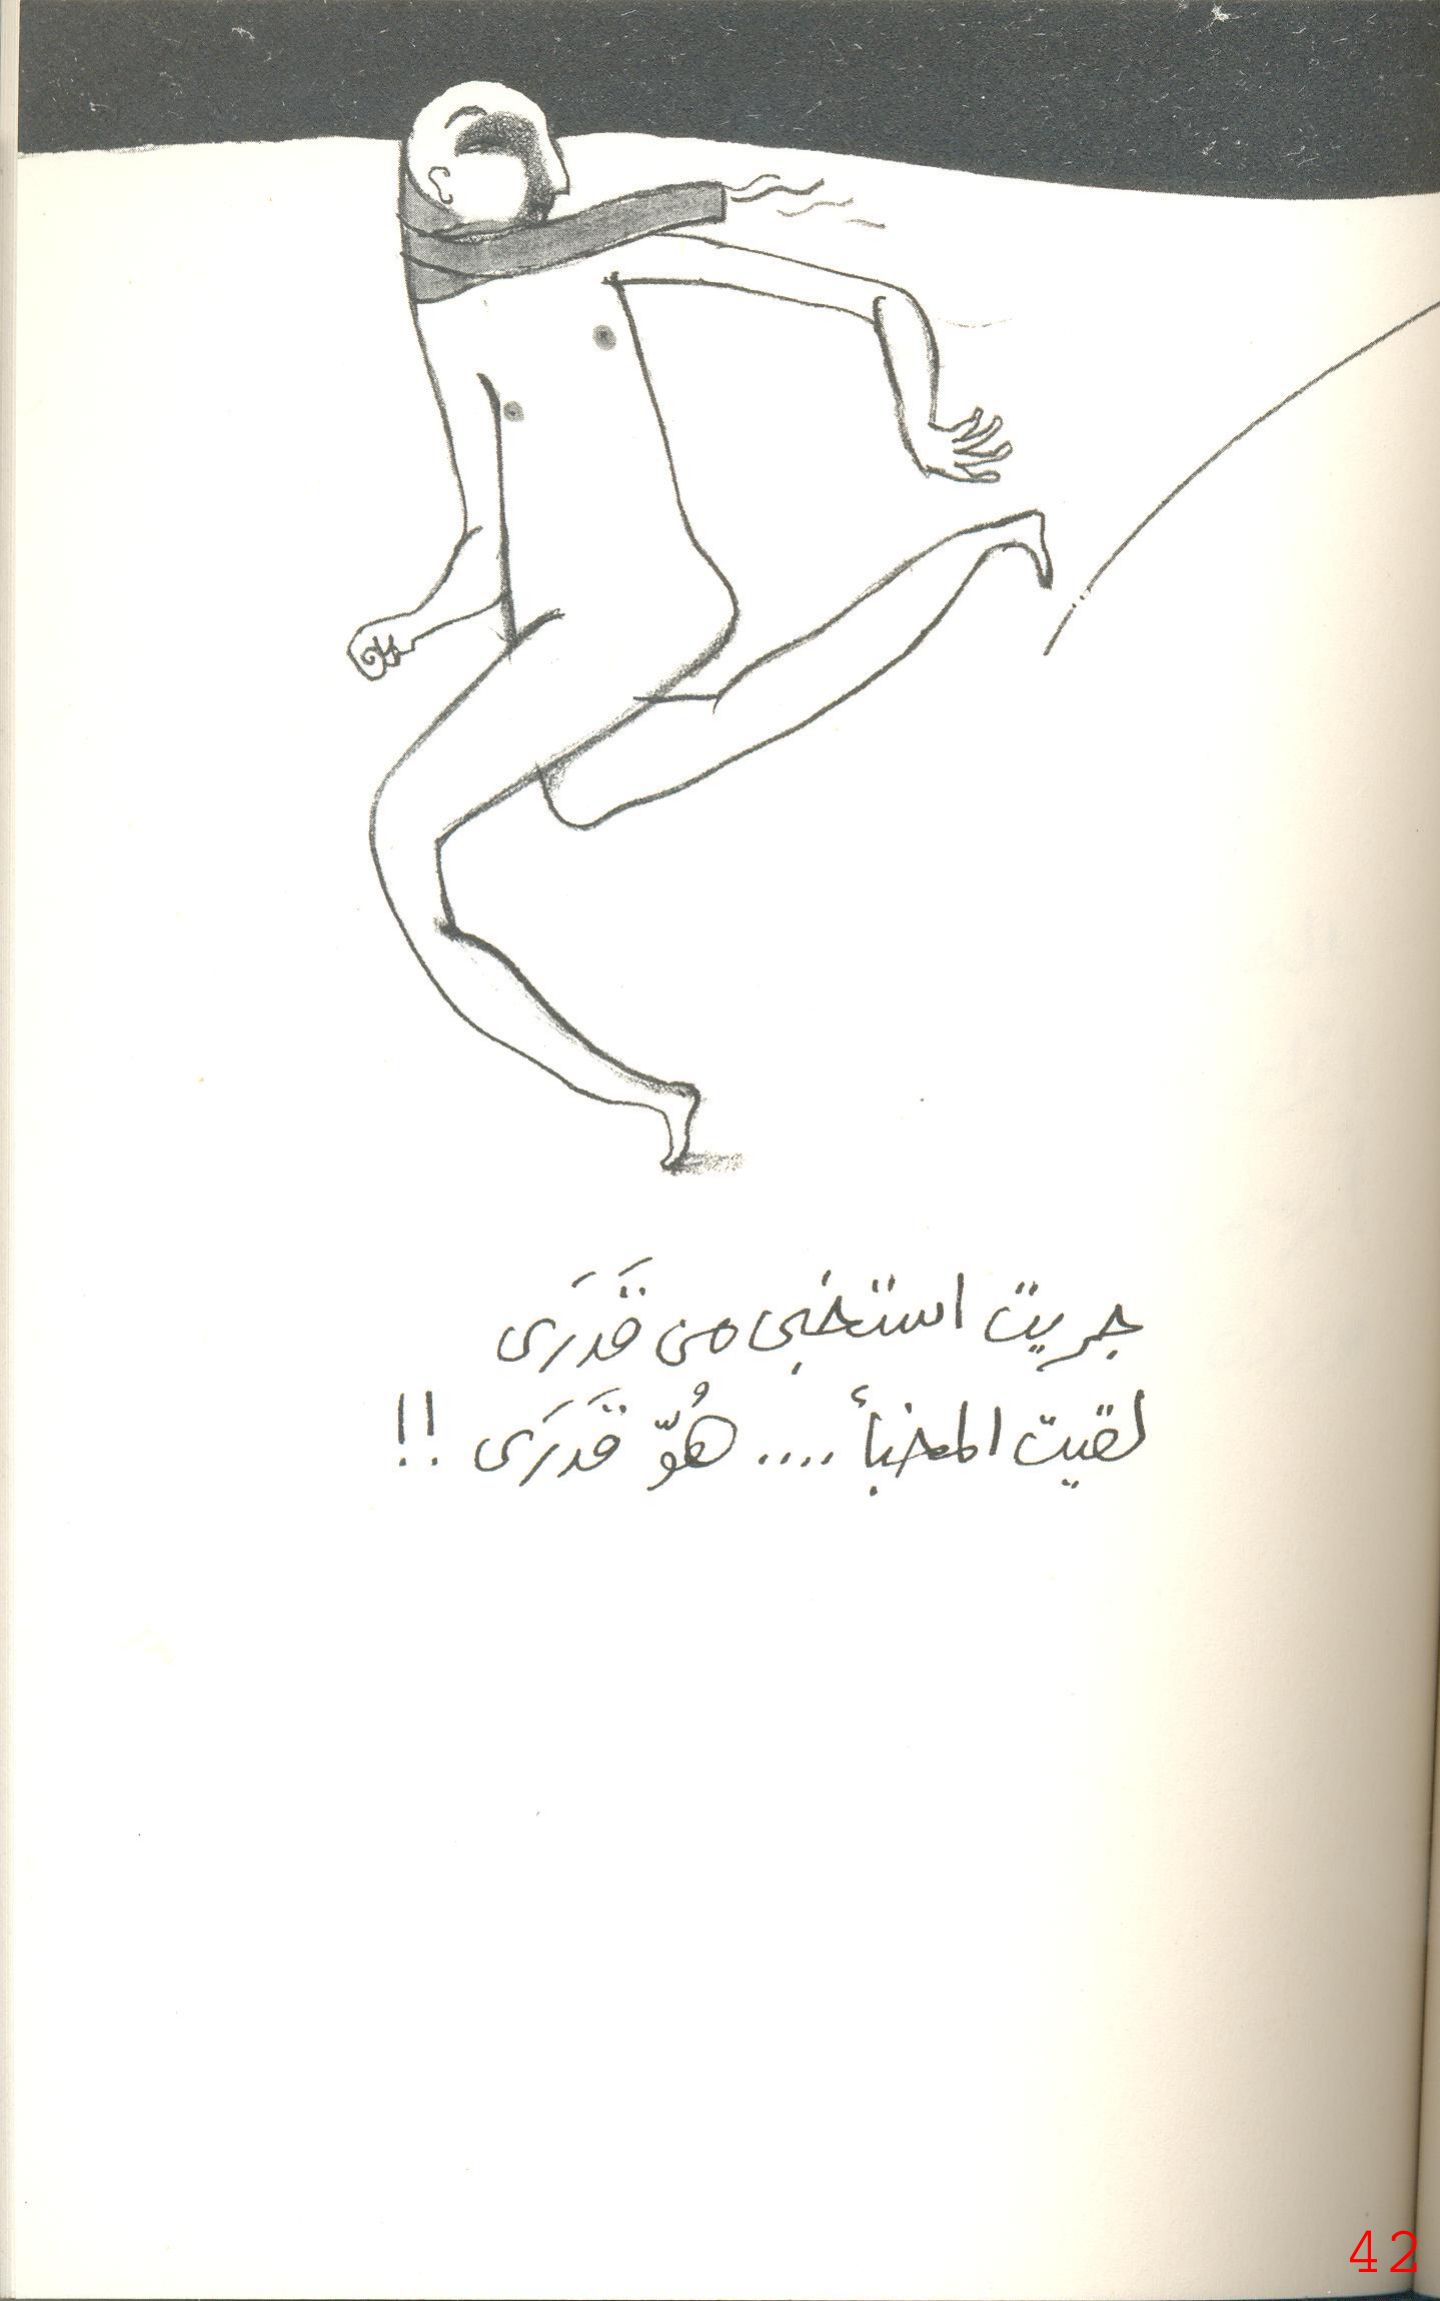 جريت استخبى من قَدَرَى
لقيت المخبأ .... هُوّ قَدَرَى !!
42